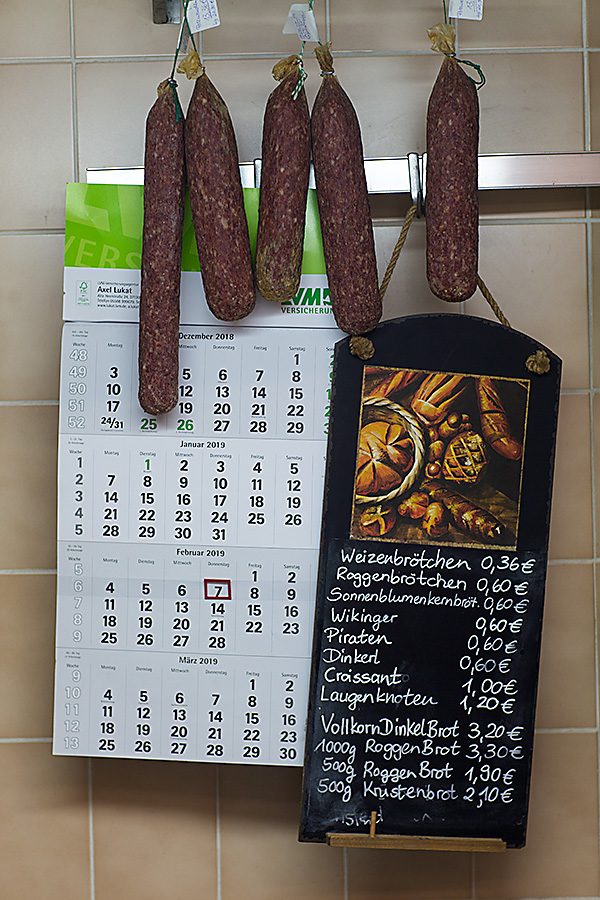 Axel Lukat
LVM
VERSICHERUNG
Dezember 2018
Woche Montag Mittwoch Donnerstag Freitag Samstag
48 1
49 3 5 6 7 8
50 10 12 13 14 15
51 17 19 20 21 22
52 24/31 25 26 27 28 29
Januar 2019
Woche Montag Dienstag Mittwoch Donnerstag Freitag Samstag
1 1 2 3 4 5
2 7 8 9 10 11 12
3 14 15 16 17 18 19
4 21 22 23 24 25 26
5 28 29 30 31
Februar 2019
Woche Montag Dienstag Mittwoch Donnerstag Freitag Samstag
5 1 2
6 4 5 6 7 8 9
7 11 12 13 14 15 16
8 18 19 20 21 22 23
9 25 26 27 28
März 2019
Woche Montag Dienstag Mittwoch Donnerstag Freitag Samstag
9 1 2
10 4 5 6 7 8 9
11 11 12 13 14 15 16
12 18 19 20 21 22 23
13 25 26 27 28 29 30
Weizenbrötchen 0,36€
Roggenbrötchen 0,60€
Sonnenblumenkernbröt. 0,60€
Wikinger 0,60€
Piraten 0,60€
Dinkerl 0,60€
Croissant 1,00€
Laugenknoten 1,20€
VollkornDinkelBrot 3,20€
1000g RoggenBrot 3,30€
500g RoggenBrot 1,90€
500g Krustenbrot 2,10€